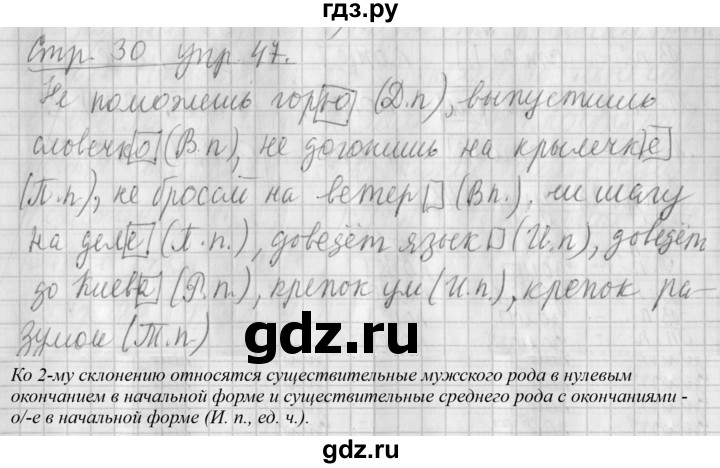 гдз.ру
Стр. 30 упр. 47.
Не поможешь горю (Д.п), выпустишь
словечко (В.п), не догонишь на крылечке
(П.п), не бросай на ветер (Вп.), ни шагу
на деле (П.п.), доведёт язык (И.п), доведёт
до Киева (Р.п.), крепок ум (И.п.), крепок ра-
зумом (Т.п)
Ко 2-му склонению относятся существительные мужского рода в нулевым
окончанием в начальной форме и существительные среднего рода с окончаниями -
о/-е в начальной форме (И. п., ед. ч.).
gdz.ru